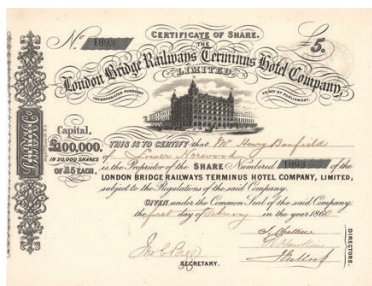 No 1893
£5.
CERTIFICATE OF SHARE.
THE
London Bridge Railways Terminus Hotel Company,
LIMITED.
INCORPORATED PURSUANT
TO ACT OF PARLIAMENT.
Capital,
£100,000,
IN 20,000 SHARES
OF £5 EACH.
THIS IS TO CERTIFY that Mr Henry Banfield
of Lower Norwood
is the Proprietor of the SHARE Numbered 1893 of the
LONDON BRIDGE RAILWAYS TERMINUS HOTEL COMPANY, LIMITED,
subject to the Regulations of the said Company.
GIVEN under the Common Seal of the said Company,
the first day of February in the year 1860
SECRETARY.
DIRECTORS.